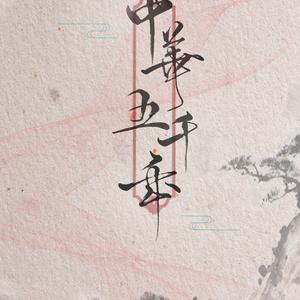 中華五千年